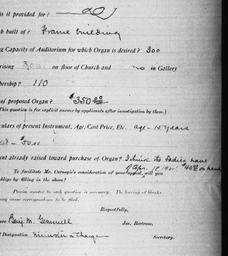 is it provided for?
built of? Frame building
g Capacity of Auditorium for which Organ is desired? 300
rising 300 on floor of Church and no in Gallery
bership? 110
of proposed Organ? $350
(This question is for explicit answer by applicants after investigation by them.)
culars of present Instrument, Age, Cost Price, Etc. age - 15 years
cost - $50.00
nt already raised toward purchase of Organ? I think the ladies have
To facilitate Mr. Carnegie's consideration of your appeal, will you
oblige by filling in the above?
Precise answer to each question is necessary. The leaving of blanks
means correspondence to be filed.
Respectfully,
Jas. Bertram,
Secretary.
Benj. M. Gemmill
Designation minister in charge